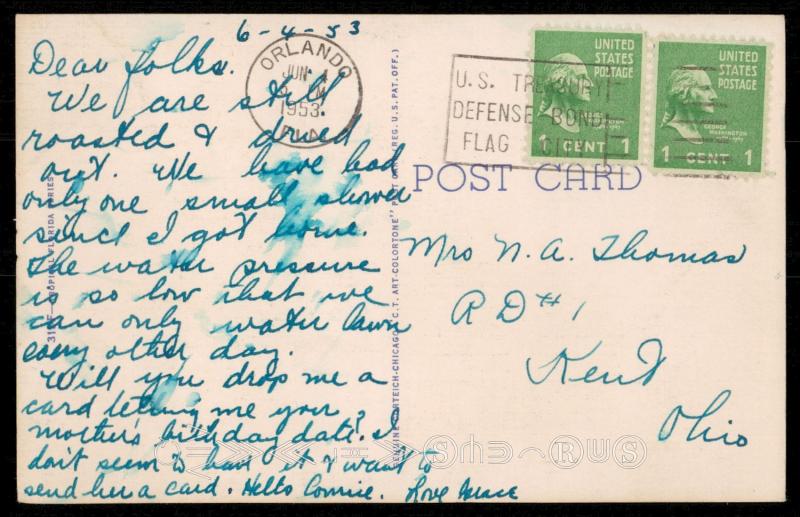 6-4-53
Dear folks.
We are still
roasted & dried
out. We have had
only one small shower
since I got home.
The water pressure
is so low that we
can only water lawn
every other day.
Will you drop me a
card letting me your
mother's birthday date? I
don't seem to have it & want to
send her a card. Hello Connie. Love
ORLANDO
JUN 4
PM
1953
FLA.
U.S. TREASURY
DEFENSE BOND
FLAG CITY
UNITED
STATES
POSTAGE
GEORGE
WASHINGTON
1 CENT 1
UNITED
STATES
POSTAGE
GEORGE
WASHINGTON
1 CENT 1
POST CARD
Mrs N. A. Thomas
RD #1
Kent
Ohio
TROPICAL FLORIDA SERIES
GENUINE CURTEICH-CHICAGO "C.T. ART-COLORTONE" POST CARD (REG. U.S. PAT. OFF.)